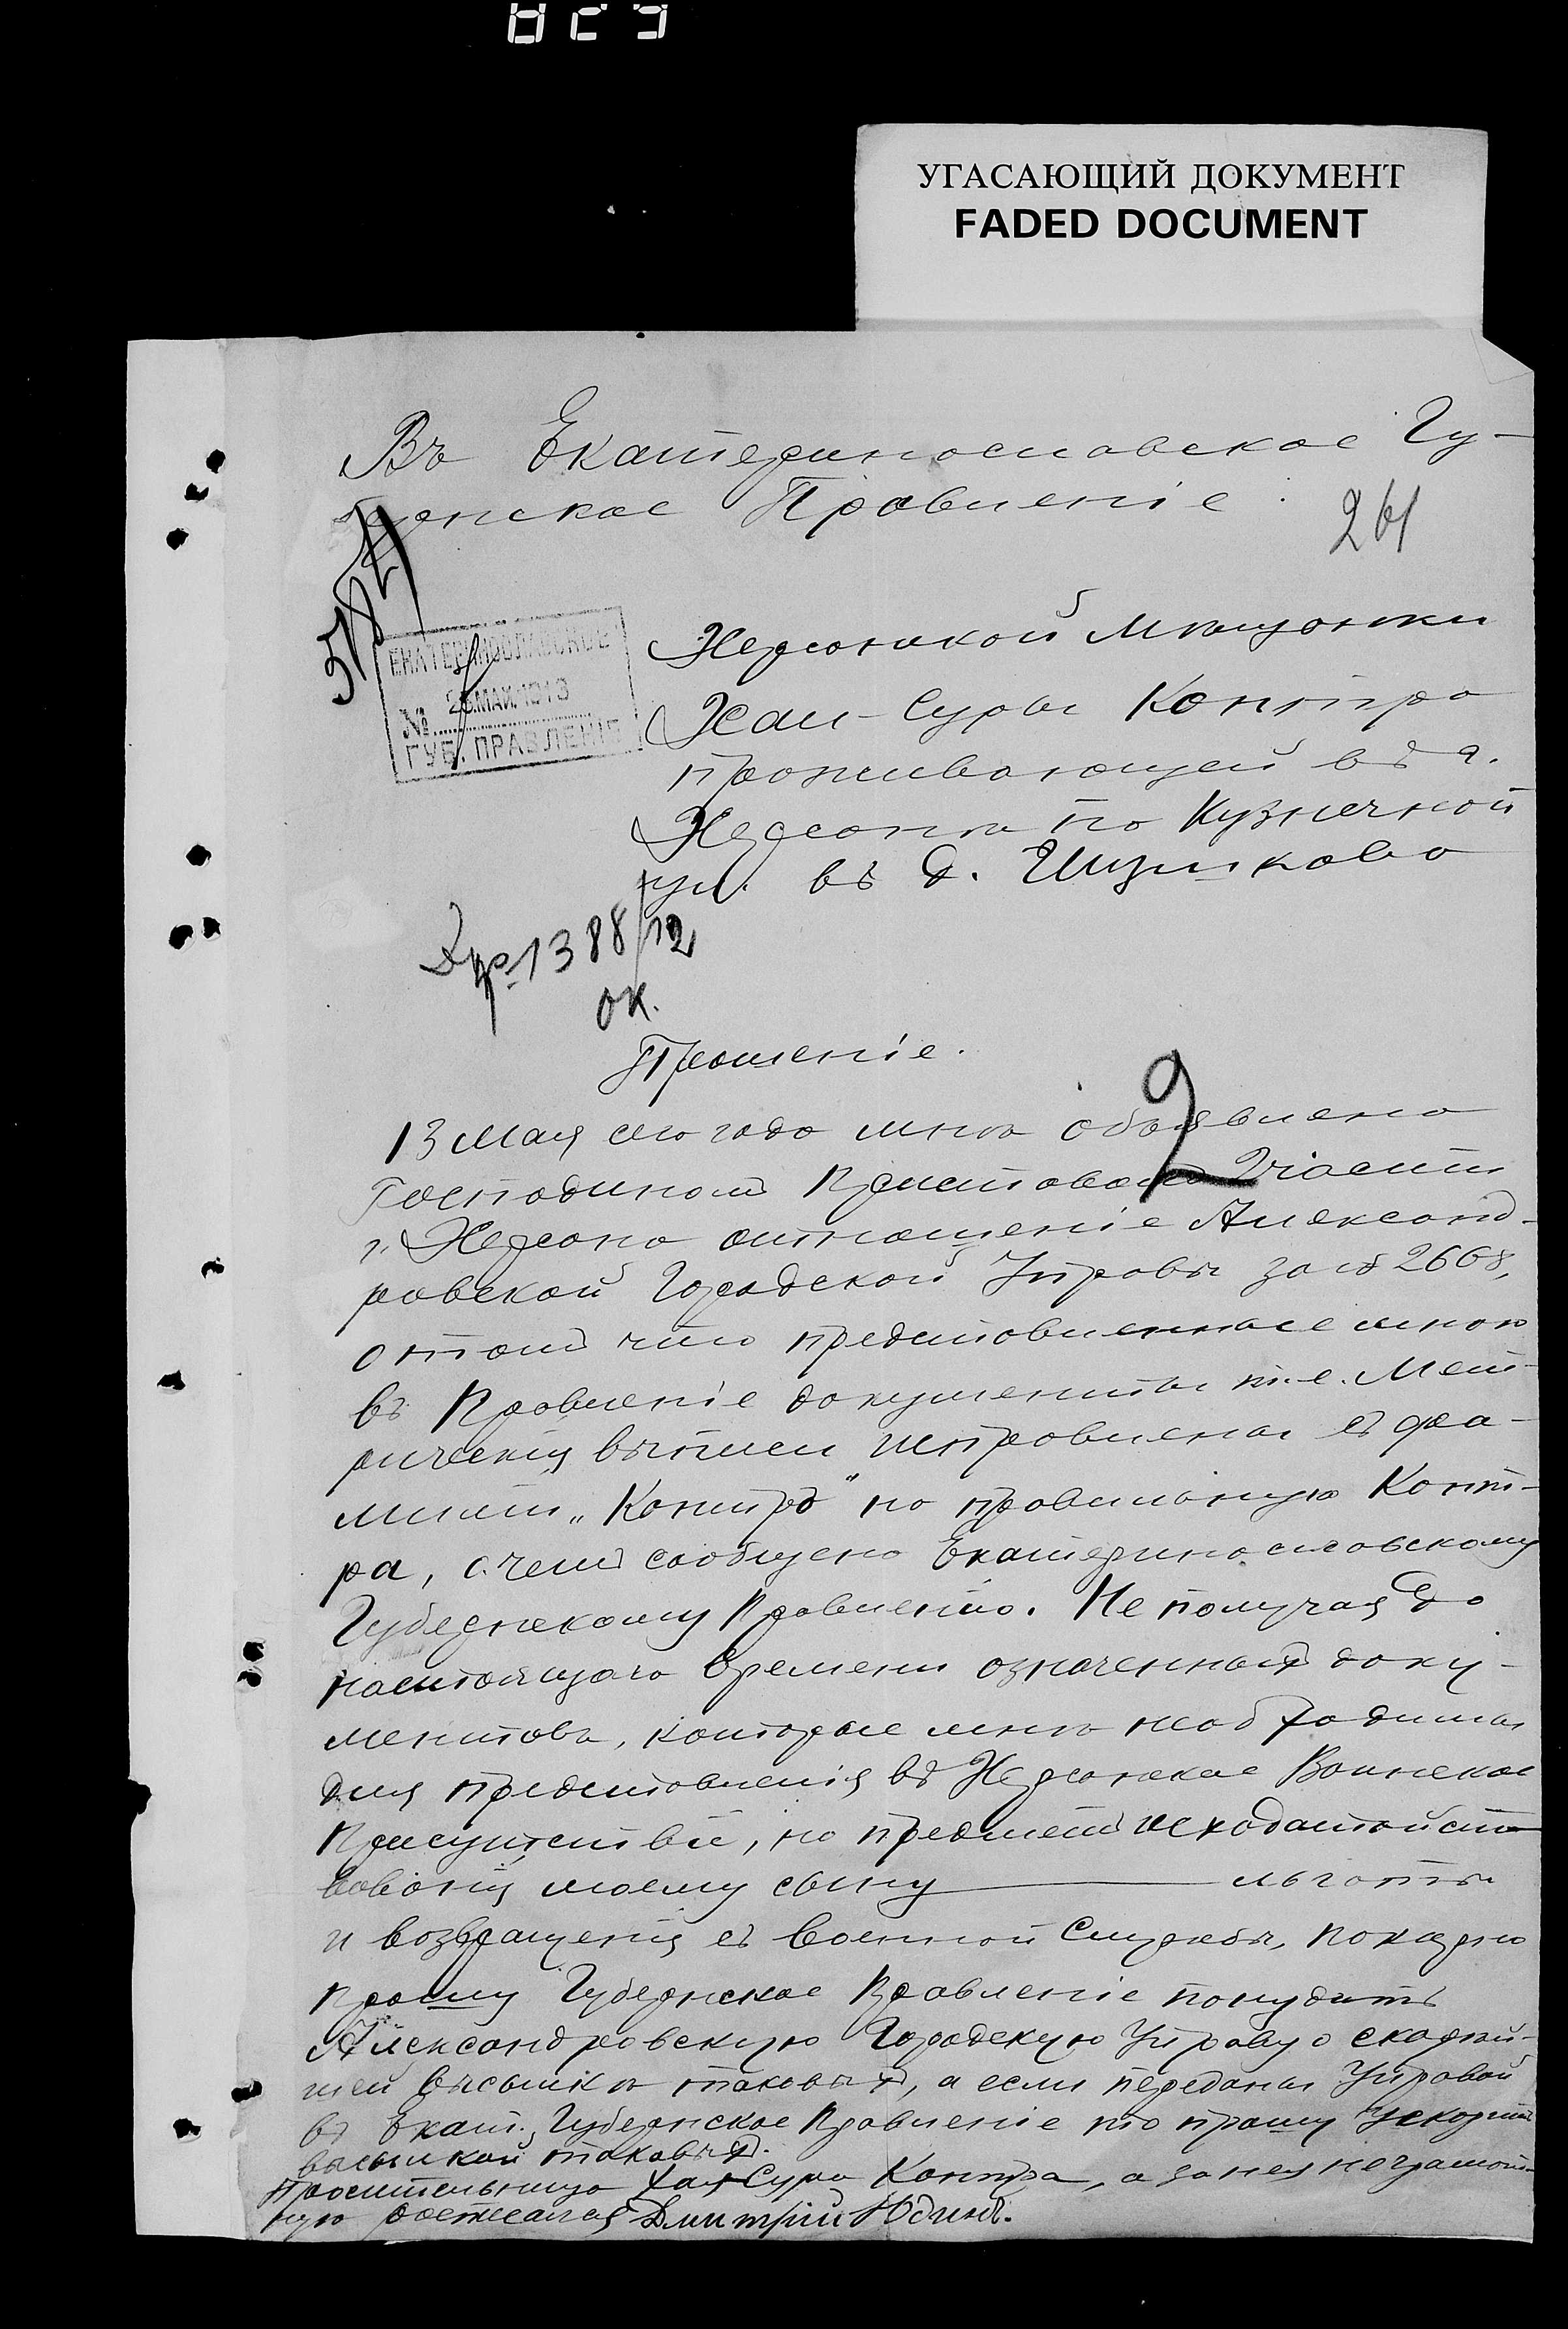 УГАСАЮЩИЙ ДОКУМЕНТ
FADED DOCUMENT
Въ Екатеринославское Гу-
бернское Правленіе.
261
ЕКАТЕРИНОСЛАВСКОЕ
МАЯ 1913
№
ГУБ. ПРАВЛЕНІЕ
Херсонской мѣщанки
Хаи-Суры Контра
проживающей въ г.
Херсонѣ по Кузнечной
ул. въ д.
1388/12
ок.
Прошеніе.
2
13 Мая сего года мнѣ объявлено
Господиномъ Приставомъ 2 части
г. Херсона отношеніе Александ-
ровской Городской Управы за № 2668,
о томъ что представленные мною
въ Правленіе документы т.е. Мет-
рическія выписи исправлены съ фа-
миліи „Контръ" на правильную Конт-
ра, о чемъ сообщено Екатеринославскому
Губернскому Правленію. Не получая до
настоящаго времени означенныхъ доку-
ментовъ, которые мнѣ необходимы
для представленія въ Херсонское Воинское
Присутствіе, на предметъ исходатайст-
вованія моему сыну льготы
и возвращенія съ военной службы, покорно
прошу Губернское Правленіе понудить
Александровскую Городскую Управу о скорѣй-
шей высылкѣ таковыхъ, а если переданы Управой
въ Екат. Губернское Правленіе то прошу ускорить
высылкой таковыхъ.
Просительница Хая-Сура Контра, а за нея неграмот-
ную росписался Дмитрій Юдинъ.